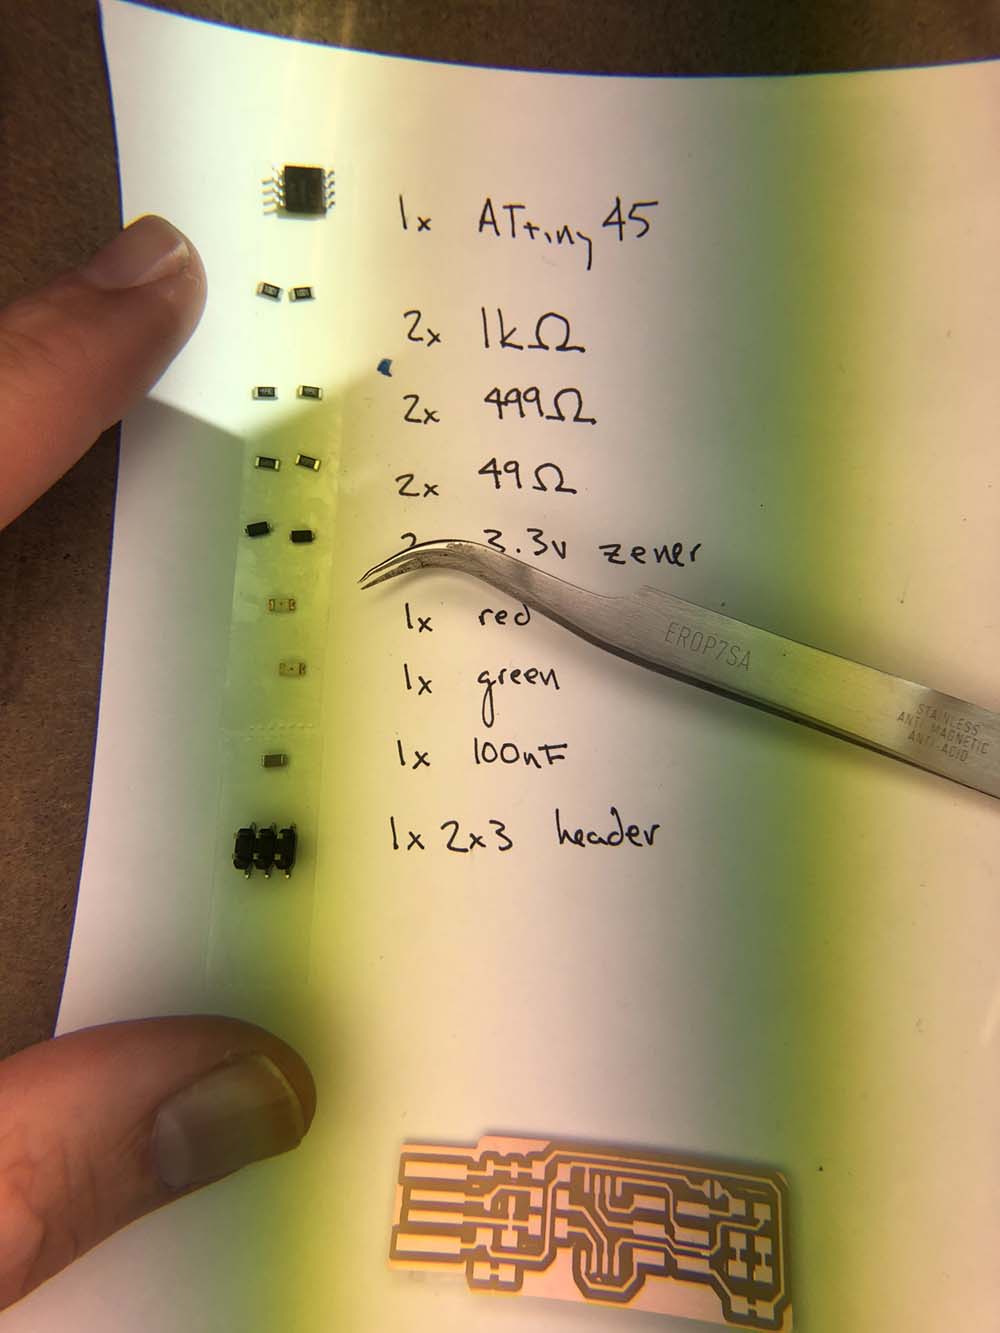 1x ATtiny 45
2x 1kΩ
2x 499Ω
2x 49Ω
2 3.3v zener
1x red
1x green
1x 100nF
1x 2x3 header
EROP7SA
STAINLESS
ANTI-MAGNETIC
ANTI-ACID